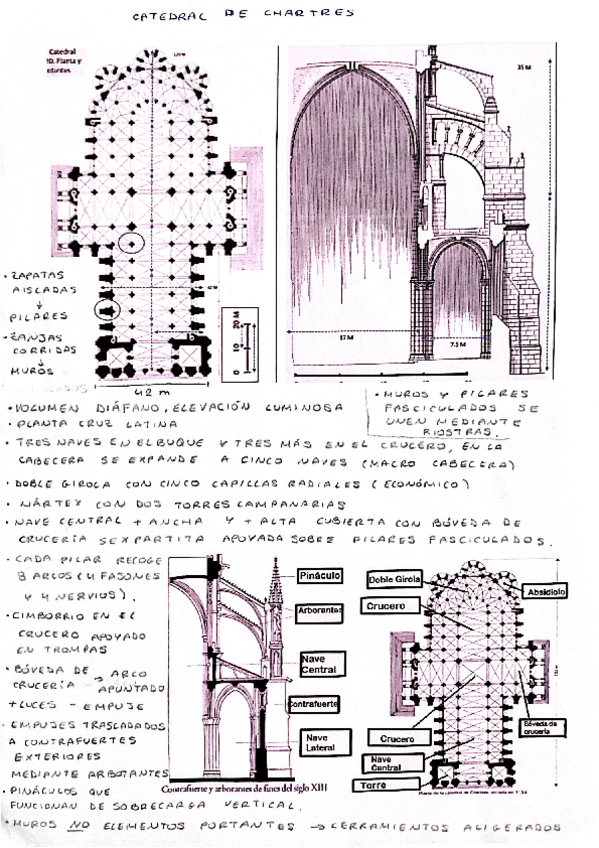 CATEDRAL DE CHARTRES
Catedral
10. Planta y
35 M
17 M
7.5 M
0 10 20 M
42 m
• ZAPATAS
AISLADAS
↓
PILARES
• ZANJAS
CORRIDAS
↓
MUROS
• MUROS Y PILARES
FASCICULADOS SE
UNEN MEDIANTE
RIOSTRAS.
• VOLUMEN DIÁFANO, ELEVACIÓN LUMINOSA
• PLANTA CRUZ LATINA
• TRES NAVES EN EL BUQUE Y TRES MÁS EN EL CRUCERO, EN LA
CABECERA SE EXPANDE A CINCO NAVES (MACRO CABECERA)
• DOBLE GIROLA CON CINCO CAPILLAS RADIALES (ECONÓMICO)
• NÁRTEX CON DOS TORRES CAMPANARIAS
• NAVE CENTRAL + ANCHA Y + ALTA CUBIERTA CON BÓVEDA DE
CRUCERÍA SEXPARTITA APOYADA SOBRE PILARES FASCICULADOS.
• CADA PILAR RECOGE
8 ARCOS (4 FAJONES
Y 4 NERVIOS).
• CIMBORRIO EN EL
CRUCERO APOYADO
EN TROMPAS
• BÓVEDA DE → ARCO
CRUCERÍA APUNTADO
+ LUCES - EMPUJE
• EMPUJES TRASLADADOS
A CONTRAFUERTES
EXTERIORES
MEDIANTE ARBOTANTES
• PINÁCULOS QUE
FUNCIONAN DE SOBRECARGA VERTICAL.
• MUROS NO ELEMENTOS PORTANTES → CERRAMIENTOS ALIGERADOS
Pináculo
Arborantes
Nave
Central
Contrafuerte
Nave
Lateral
Contrafuerte y arborantes de fines del siglo XIII
Doble Girola
Absidiolo
Crucero
Bóveda de
crucería
Crucero
Nave
Central
Torre